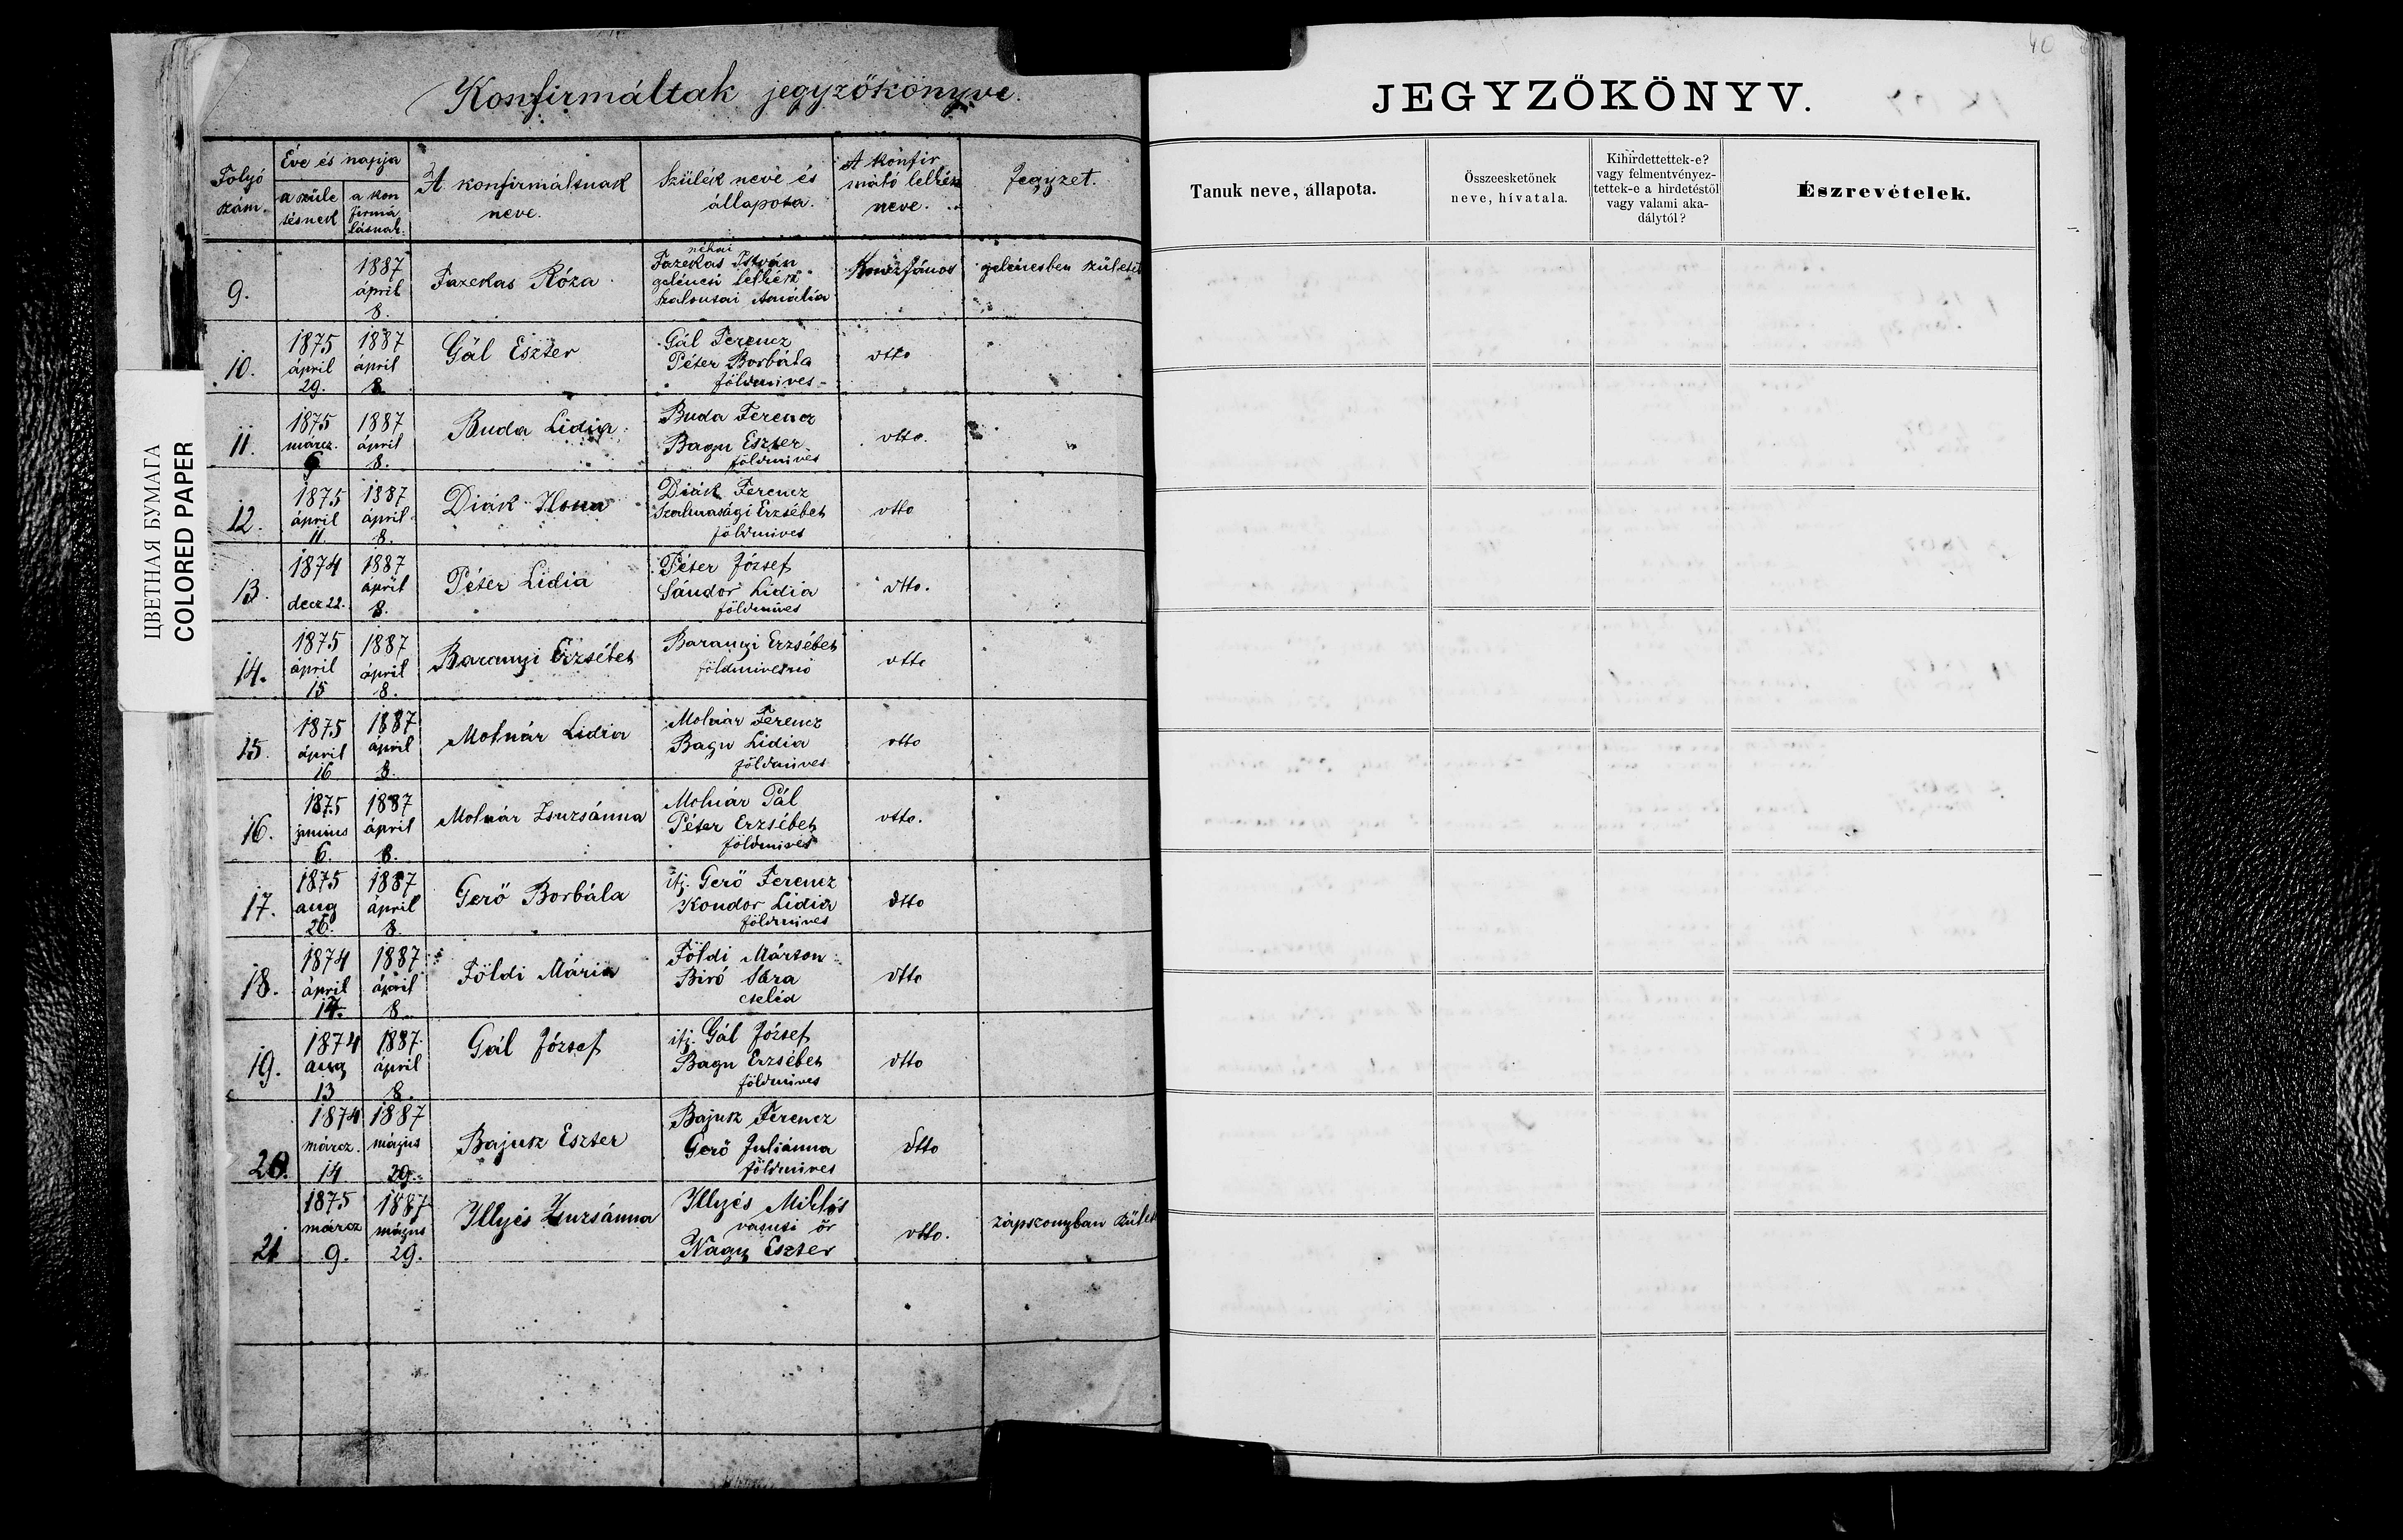 Konfirmáltak jegyzőkönyve.
Folyó szám.
Éve és napja
a születésnek
a konfirmálásnak
A konfirmálsnak neve.
Szülék neve és állapota.
A konfirmáló lelkész neve.
Jegyzet.
9.
1887 ápril 8.
Fazekas Róza
néhai
Fazekas István
gelénesi lelkész
Amália
János
gelénesben született
10.
1875 ápril 29.
1887 ápril 8
Gál Eszter
Gál Ferencz
Péter Borbála
földmives
dtto
11.
1875 márcz. 6
1887 ápril 8.
Buda Lidia
Buda Ferencz
Bagu Eszter
földmives
dtto.
12.
1875 ápril 11
1887 ápril 8.
Diák Ilona
Diák Ferencz
Szalmasági Erzsébet
földmives
dtto
13.
1874 decz 22.
1887 ápril 8.
Péter Lidia
Péter József
Sándor Lidia
földmives
dtto.
14.
1875 ápril 15
1887 ápril 8.
Baranyi Erzsébet
Baranyi Erzsébet
földmivesnő
dtto
15.
1875 ápril 16
1887 ápril 8.
Molnár Lidia
Molnár Ferencz
Bagu Lidia
földmives
dtto
16.
1875 junius 6.
1887 ápril 8.
Molnár Zsuzsánna
Molnár Pál
Péter Erzsébet
földmives
dtto.
17.
1875 aug 26.
1887 ápril 8.
Gerő Borbála
ifj. Gerő Ferencz
Kondor Lidia
földmives
dtto
18.
1874 ápril 17.
1887 ápril 8.
Földi Mária
Földi Márton
Biró Sára
cseléd
dtto
19.
1874 aug 13
1887 ápril 8.
Gál József
ifj. Gál József
Bagu Erzsébet
földmives
dtto
20.
1874 márcz. 14
1887 május 29.
Bajusz Eszter
Bajusz Ferencz
Gerő Juliánna
földmives
dtto
21
1875 márcz 9.
1887 május 29.
Illyés Zsuzsánna
Illyés Miklós
vasuti őr
Nagy Eszter
dtto.
zápszonyban szület
ЦВЕТНАЯ БУМАГА
COLORED PAPER
40
JEGYZŐKÖNYV.
Tanuk neve, állapota.
Összeesketőnek
neve, hívatala.
Kihirdettettek-e?
vagy felmentvényez-
tettek-e a hirdetéstől
vagy valami aka-
dálytól?
Észrevételek.